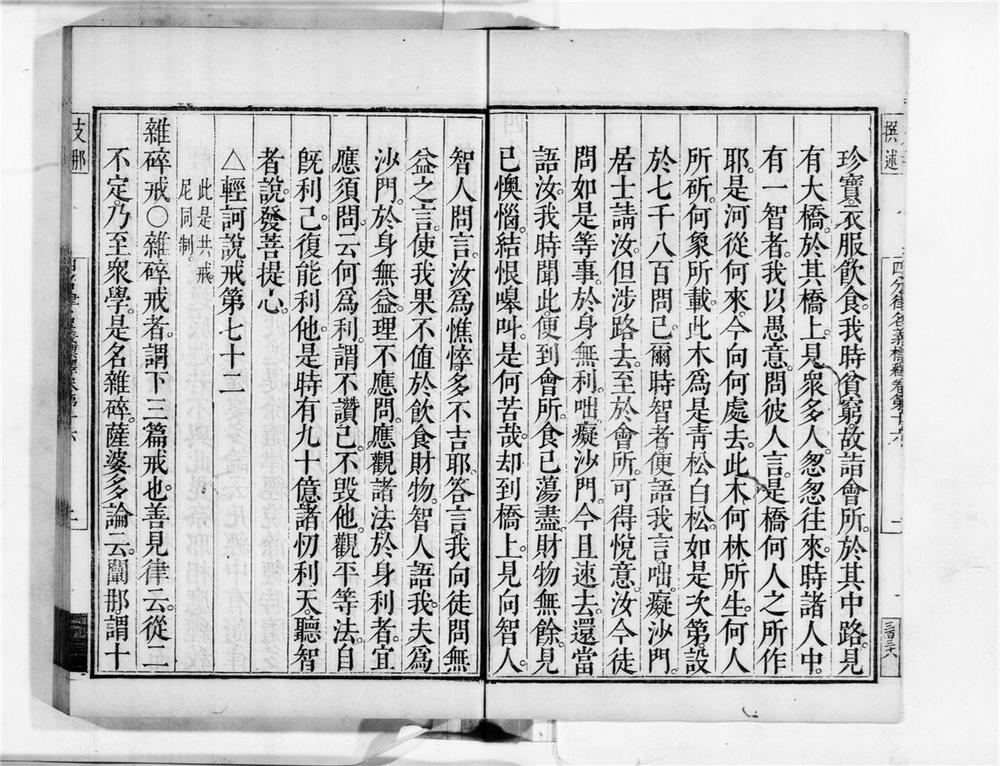 撰述
四分律名義標釋卷第十六
二
三百三十六
珍寶。衣服飲食。我時貧窮。故詣會所。於其中路。見
有大橋。於其橋上。見衆多人。忽忽往來。時諸人中。
有一智者。我以愚意。問彼人言。是橋何人之所作
耶。是河從何來。今向何處去。此木何林所生。何人
所斫。何象所載。此木爲是青松白松。如是次第。設
於七千八百問已。爾時智者。便語我言。咄癡沙門。
居士請汝。但涉路去。至於會所。可得悅意。汝今徒
問如是等事。於身無利。咄癡沙門。今且速去。還當
語汝。我時聞此。便到會所。食已蕩盡。財物無餘。見
已懊惱。結恨嘷呌。是何苦哉。却到橋上。見向智人。
智人問言。汝爲憔悴。多不吉耶。答言。我向徒問無
益之言。使我果不值於飲食財物。智人語我。夫爲
沙門。於身無益。理不應問。應觀諸法。於身利者。宜
應須問。云何爲利。謂不讚己。不毀他。觀平等法。自
旣利己。復能利他。是時有九十億諸忉利天。聽智
者說。發菩提心。
△輕訶說戒第七十二
此是共戒。
尼同制。
雜碎戒〇雜碎戒者。謂下三篇戒也。善見律云。從二
不定。乃至衆學。是名雜碎。薩婆多論云。闡那謂十
支那